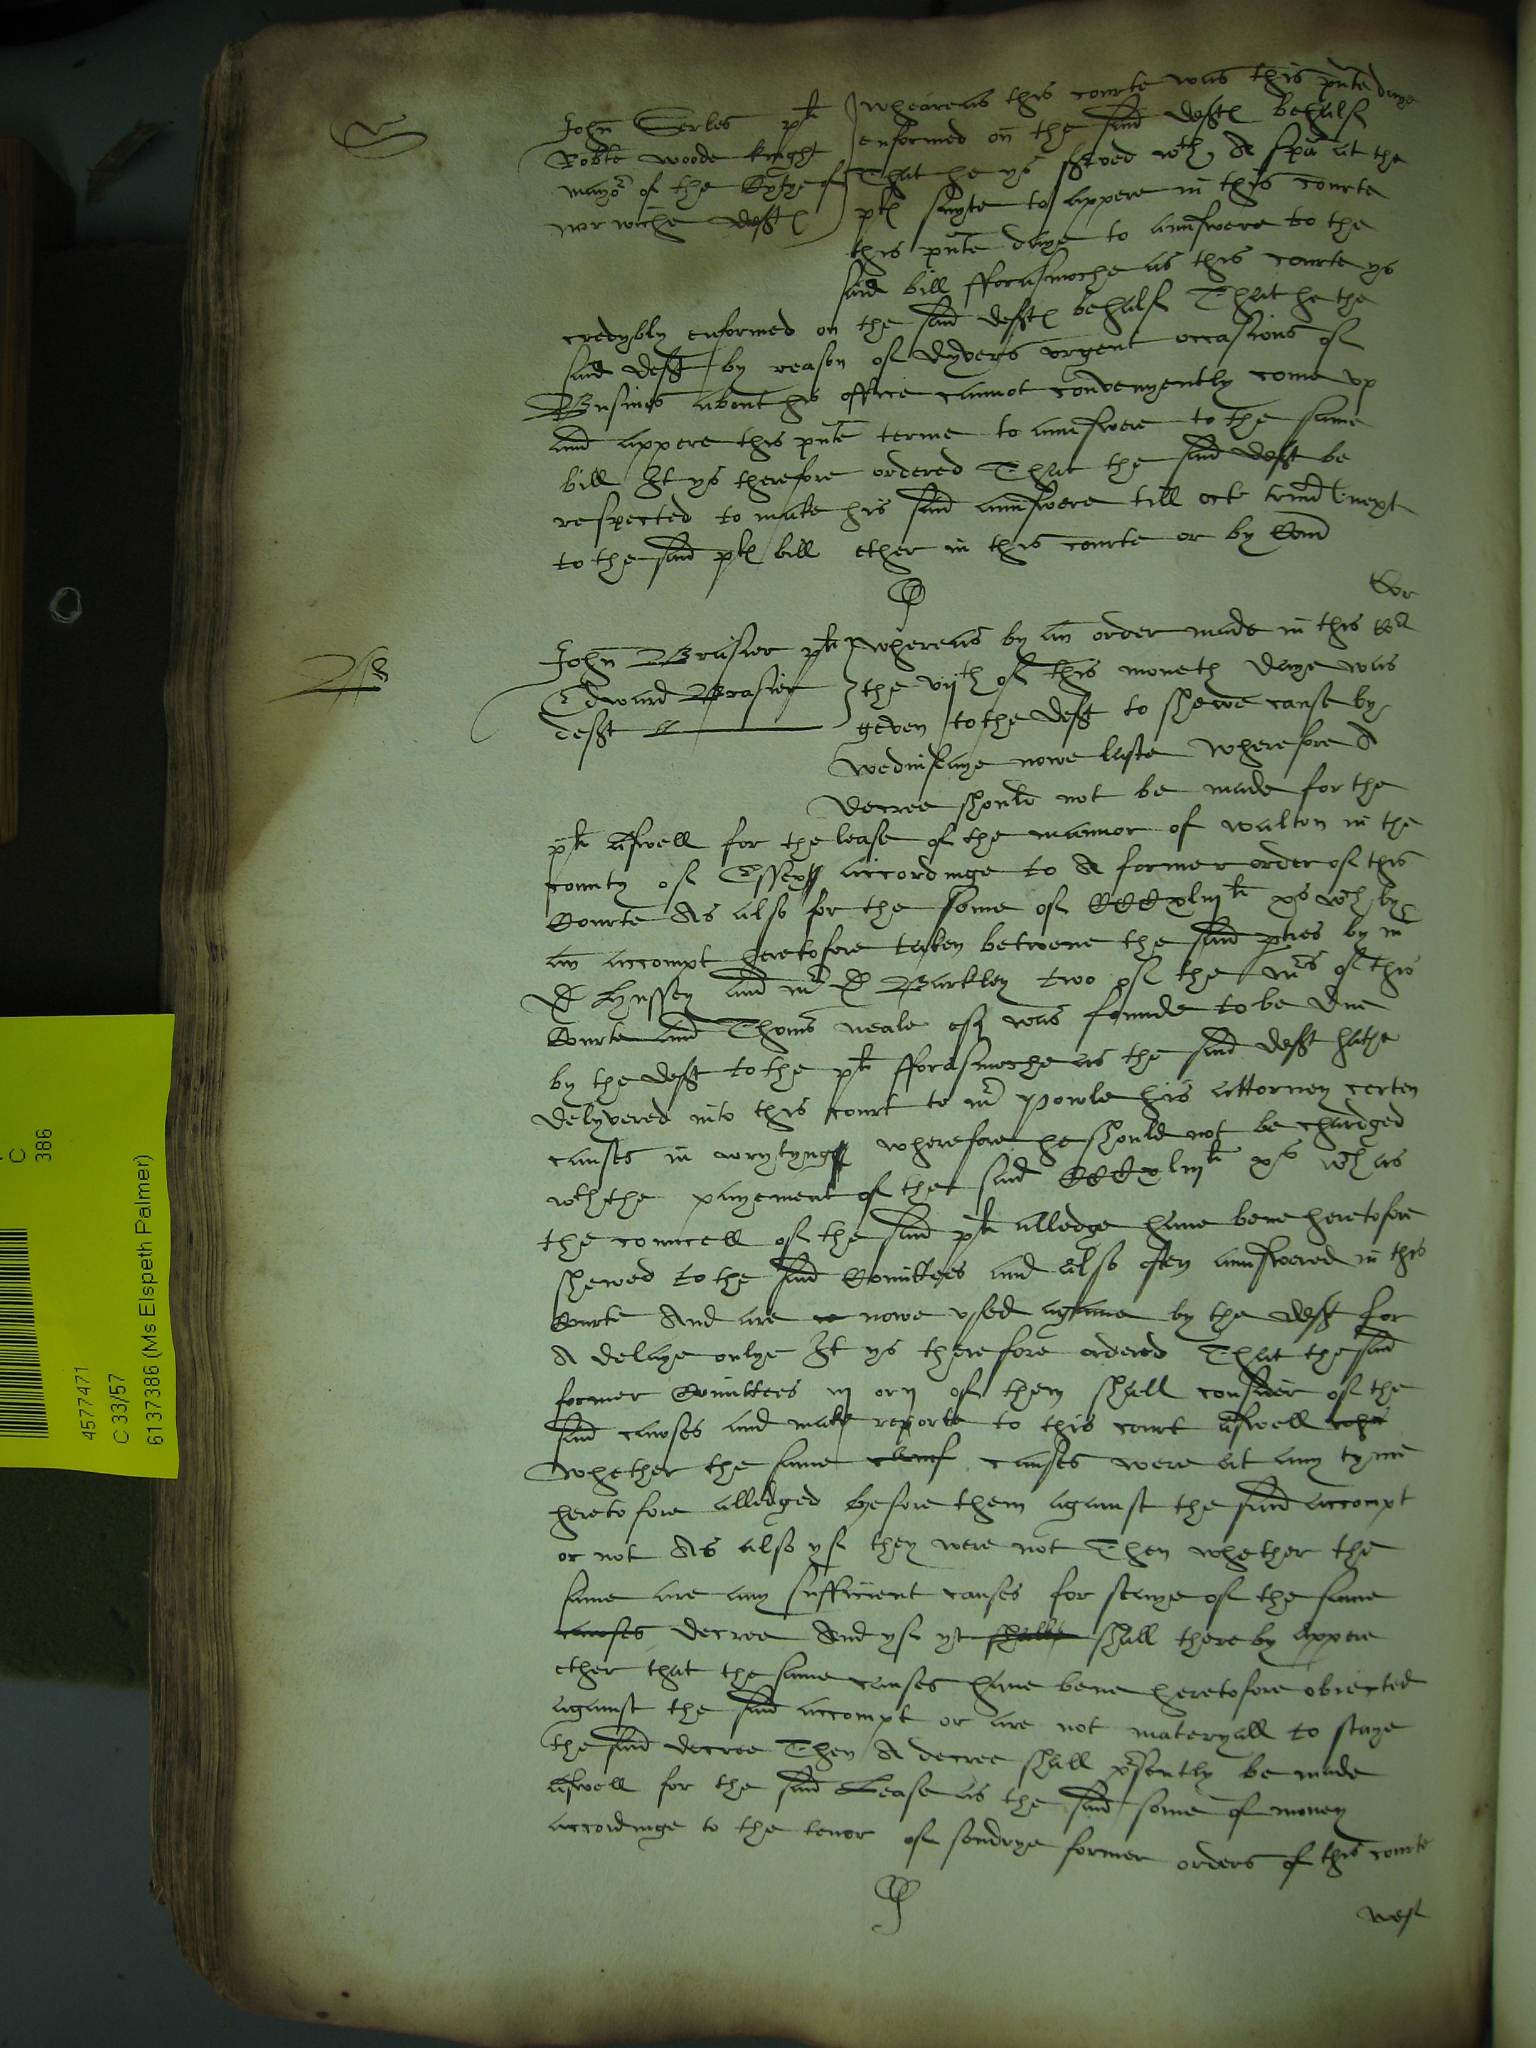 S
John Serles plt
Robte woode knight
mayor of the Cytye of
norwiche deft
wheareas this courte was this pnte daye
enformed on the said deftes behalf
That he ys served wth A spa at the
pltes suyte to appere in this courte
this pnte daye to aunswere to the
said bill fforasmoche as this courte ys
credybly enformed on the said deftes behalf That he the
said deft by reason of dyvers urgent occasions of
Busines about his office cannot convenyently come up
and appere this pnte terme to aunswere to the same
bill It ys therefore ordered That the said deft be
respected to make his said aunswere till next
to the said pltes bill ether in this courte or by Comd
John Brasier plt
Edward Brasier
deft
whereas by an order made in this
the vijth of this moneth daye was
geven to the deft to shewe cause by
wednisdaye nowe laste wherefore A
decree should not be made for the
plt aswell for the lease of the mannor of walton in the
county of Essex accordinge to A former order of this
Courte As also for the some of CCCxliijli xs wch by
an accompt heretofore taken betwene the said pties by mr
D Hussey and mr D Barkley two of the mrs of this
Courte and Thoms neale esq was founde to be due
by the deft to the plt fforasmoche as the said deft hathe
delyvered into this court to mr powle his attorney certen
causes in wrytynge wherefore he should not be chardged
wth the payement of the said CCCxliijli xs wch as
the councell of the said plt alledge have bene heretofore
shewed to the said Comittees and also often aunswered in this
Courte And are nowe used againe by the deft for
A delaye onlye It ys therefore ordered That the said
former Comittees iij or ij of them shall consider of the
said cawses and make reporte to this court aswell
whether the same causes were at any tyme
heretofore alledged before them against the said accompt
or not As also yf they were not Then whether the
same are any sufficient causes for staye of the same
cawses decree And yf yt shall thereby appere
ether that the same causes have bene heretofore obiected
against the said accompt or are not materyall to staye
the said decree Then A decree shall presently be made
aswell for the said Lease as the said some of money
accordinge to the tenor of sondrye former orders of this courte
C
386
4577471
C 33/57
6137386 (Ms Elspeth Palmer)